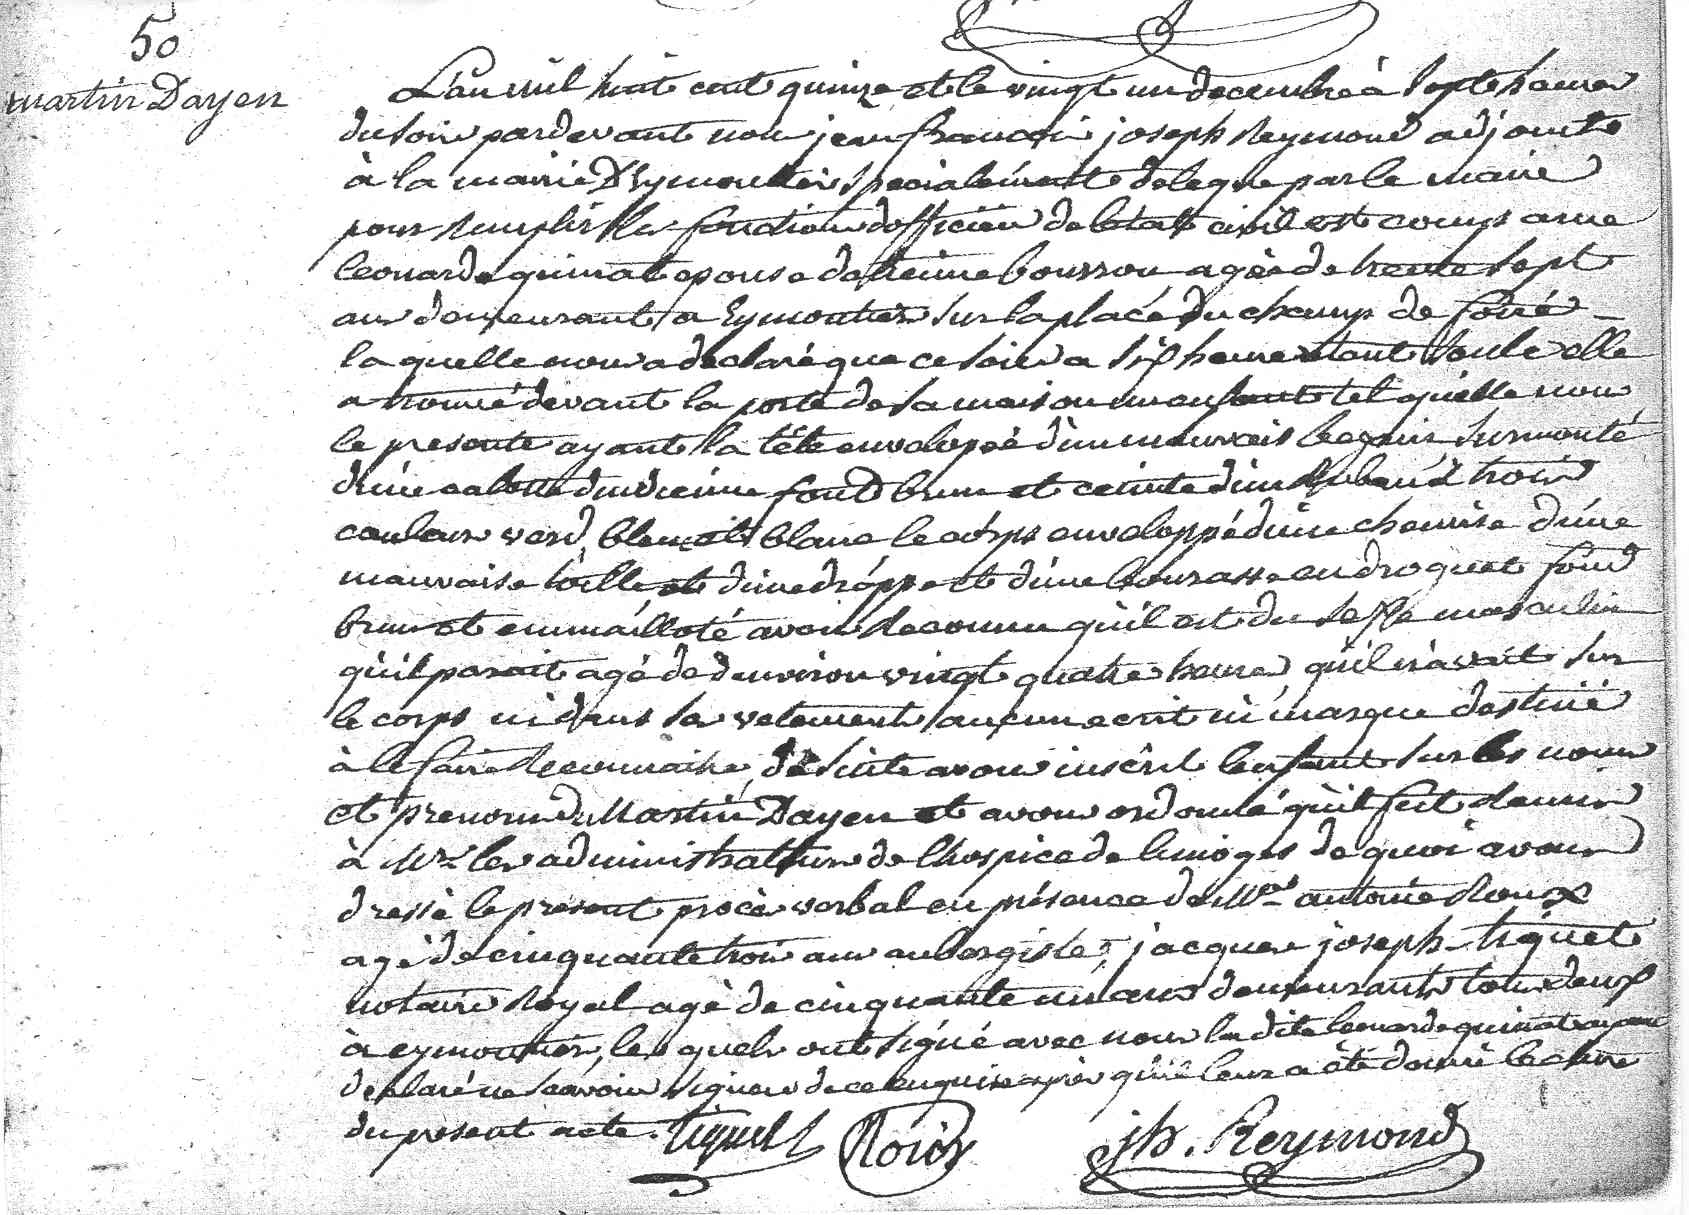 50
martin Dayen
L'an mil huit cent quinze et le vingt un decembre à sept heures
du soir pardevant nous jean francois joseph Reymond adjoint
à la mairie D'Eymoutiers specialement delegue par le maire
pour remplir les fonctions d'officier de l'etat civil est comparue
leonarde quinat epouse d'etienne boussou agée de trente sept
ans demeurant a Eymoutiers sur la place du champ de foire
la quelle nous a declaré que ce soir a six heures etant seule elle
a trouvé devant la porte de sa maison un enfant tel qu'elle nous
le presente ayant la tête envelopée d'un mauvais beguin surmonté
d'une calotte d'indienne fond brun et ceinte d'un ruban à trois
couleurs verd, bleu et blanc le corps enveloppé d'une chemise d'une
mauvaise toille et d'une drappe et d'une bourasse en droguet fond
brun et emmailloté avons reconnu qu'il est du sexe masculin
qu'il parait agé de d'environ vingt quatre heures qu'il n'avait sur
le corps ni dans ses vetements aucun ecrit ni marque destiné
à le faire reconnaitre, de suite avons inscrit l'enfant sur les noms
et prenoms de Martin Dayen et avons ordonné qu'il fut remis
à Mrs les administratteurs de l'hospice de limoges de quoi avons
dressé le present procès verbal en présence de Mrs antoine Roux
agé de cinquante trois ans aubergiste, jacques joseph tiquet
notaire Royal agé de cinquante un ans demeurants tous deux
à eymoutiers, les quels ont signé avec nous la dite leonarde quinat ayant
declaré ne scavoir signer de ce enquise après qu'il leur a été donné lecture
du present acte. Tiquet Roux Jh. Reymond